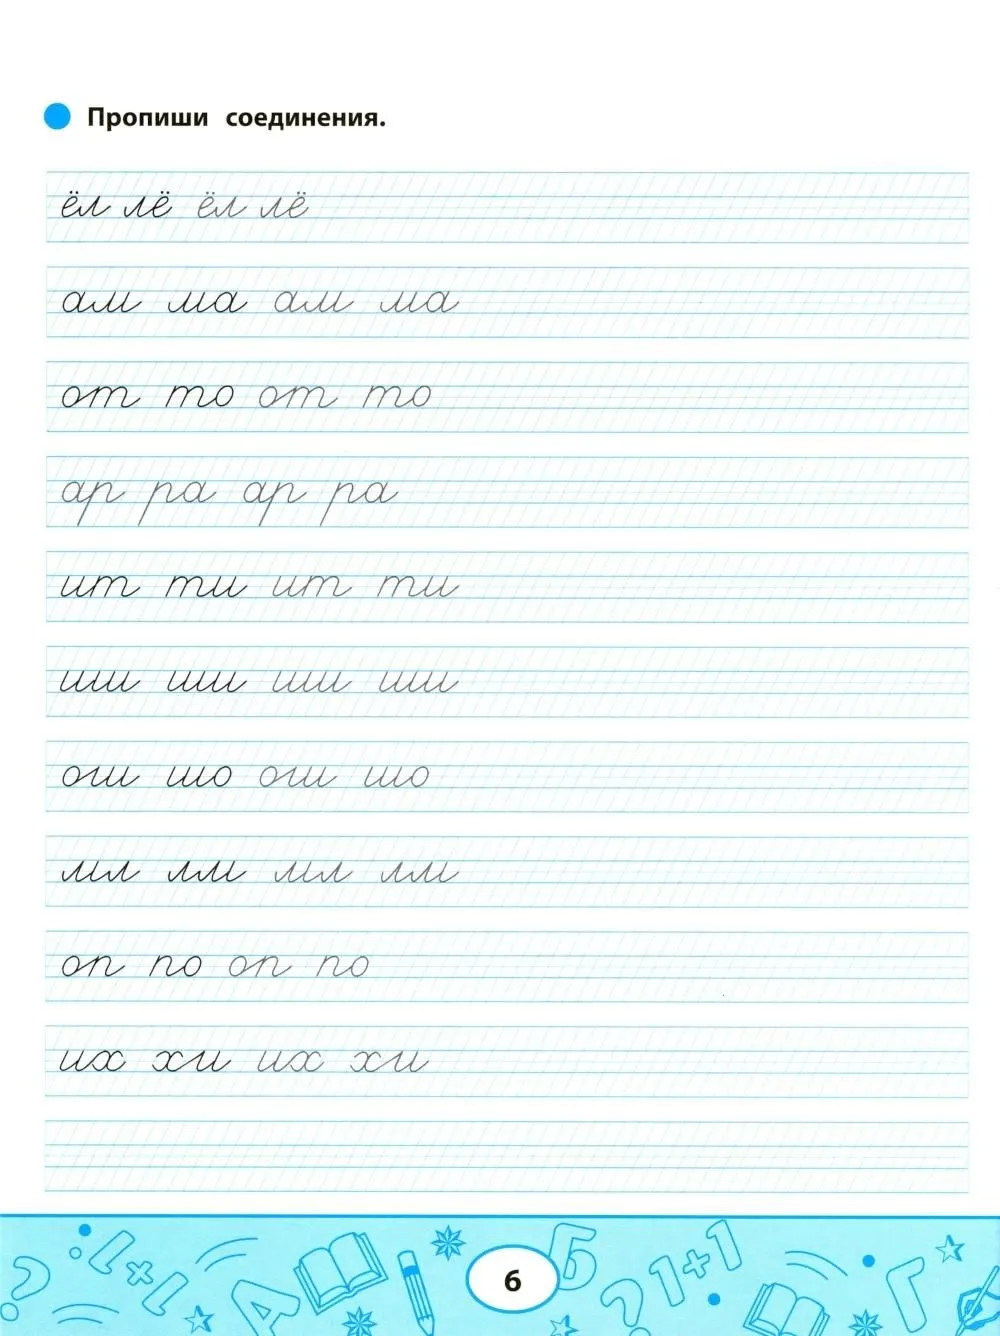 Пропиши соединения.
ёл лё ёл лё
ам ма ам ма
от то от то
ар ра ар ра
ит ти ит ти
ши ши ши ши
ош шо ош шо
мл лм мл лм
оп по оп по
их хи их хи
? 1+1 А Б ? 1+1 Г
6